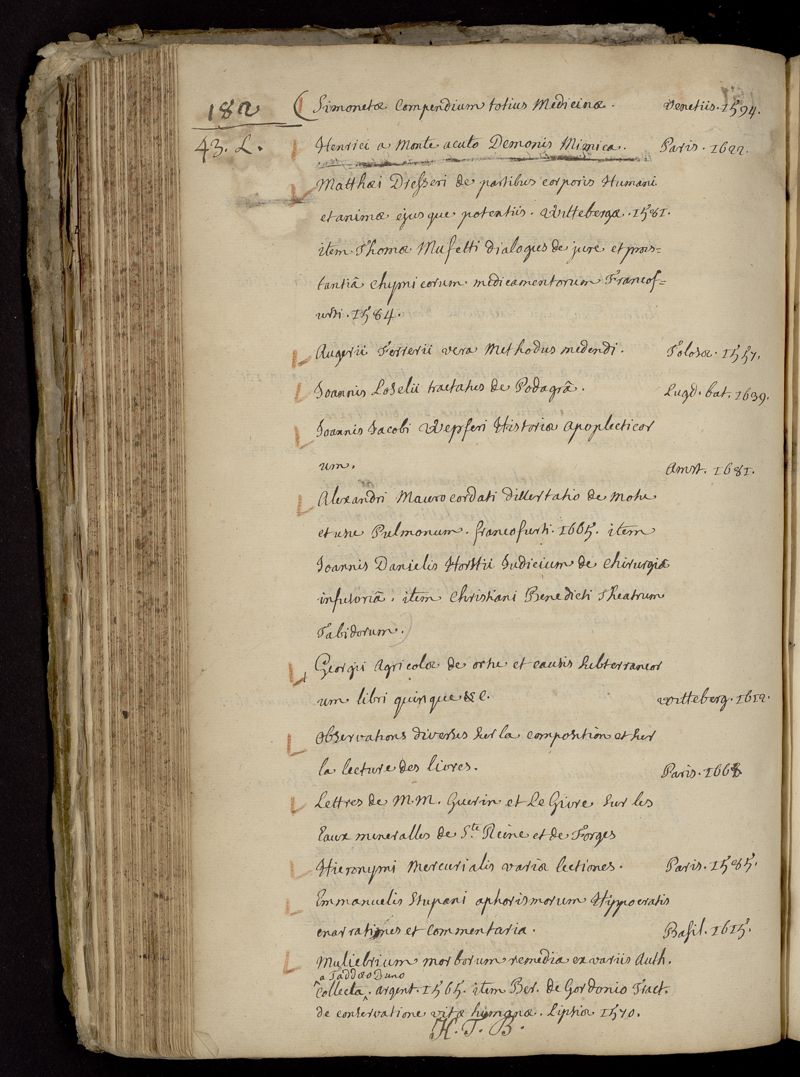 182 Simonetæ Compendium totius Medicinæ. Venetiis. 1594.
43. L. Henrici a Monte acuto Demonis Mimica. Paris. 1622.
Matthæi Dresseri de partibus corporis Humani
et animæ ejusque potentiis. Wittebergæ. 1581.
item Thomæ Mufetti dialogus de jure et præs=
tantiâ chymicorum medicamentorum Francof=
urti. 1584.
Augerii Ferrerii vera Methodus medendi. Tolosæ. 1557.
Joannis Loselii tractatus de Podagrâ. Lugd. bat. 1639.
Joannis Jacobi Wepferi Historiæ apoplecticor
um. Amst. 1681.
Alexandri Maurocordati dissertatio de motu
et usu Pulmonum. francofurti. 1665. item
Joannis Danielis Horstii Judicium de Chirurgiâ
infusoriâ. item Christiani Benedicti Theatrum
Tabidorum.
Georgii Agricolæ de ortu et causis subterraneor
um libri quinque &c. Witteberg. 1612.
Observations diverses sur la composition et sur
la lecture des livres. Paris. 1668
Lettres de M.M. Guerin et Le Givre sur les
Eaux mineralles de Ste Reine et de Forges
Hieronymi Mercurialis variæ lectiones. Paris. 1585.
Emmanuelis Stupani aphorismorum Hippocratis
enarrationes et commentaria. Basil. 1615.
Muliebrium morborum remedia ex variis Auth.
a Taddæo Duno
collecta. argent. 1565. item Ber. de Gordonio Tract.
de conservatione vitæ humanæ. Lipsiæ 1570.
H. T. B.